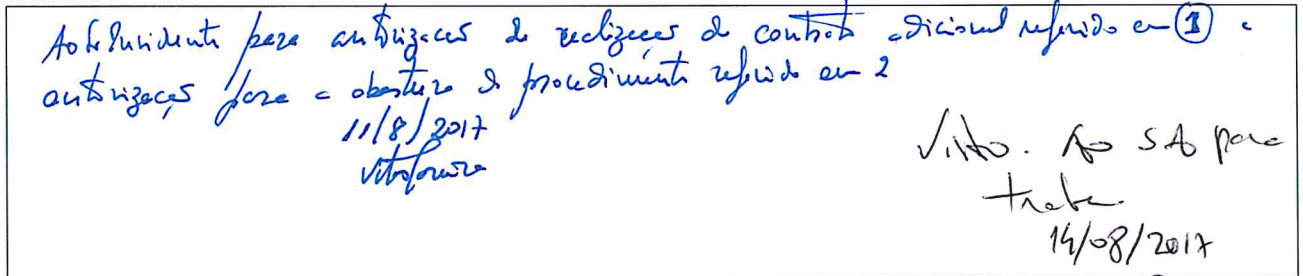 Ao Sr. Presidente para autorização de realização do contrato adicional referido em 1 e
autorização para a abertura do procedimento referido em 2
11/8/2017
Visto. Ao SA para
tratar
14/08/2017